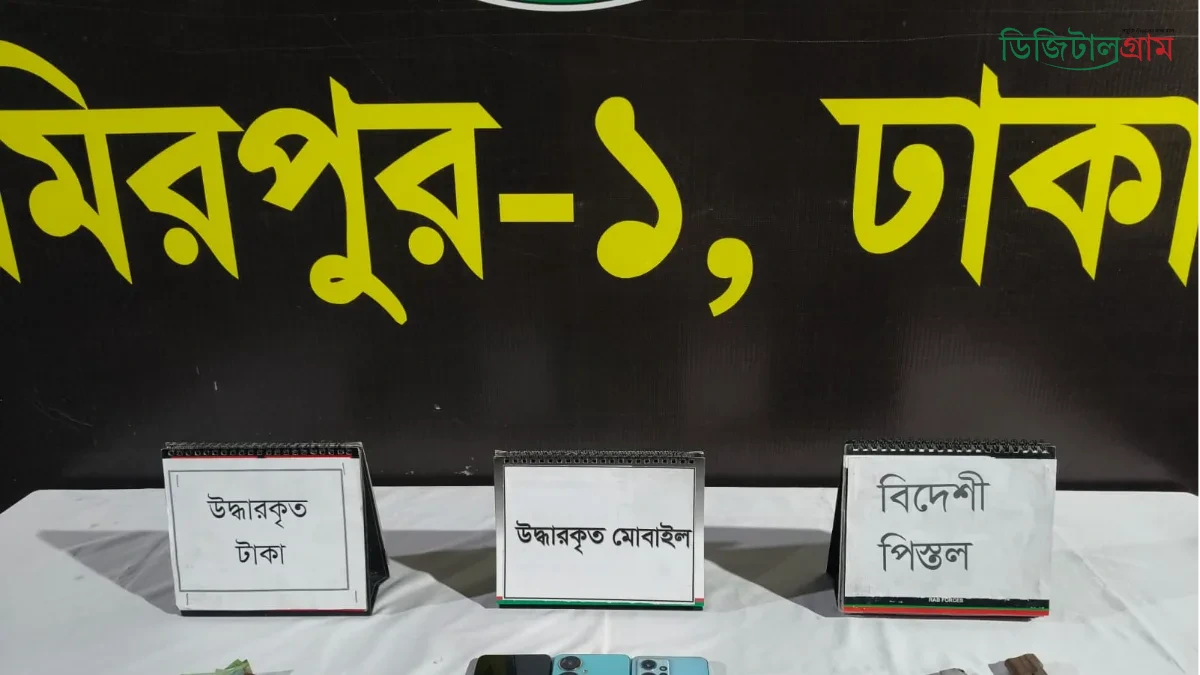 ডিজিটালগ্রাম
মিরপুর-১, ঢাকা
উদ্ধারকৃত
টাকা
উদ্ধারকৃত মোবাইল
বিদেশী
পিস্তল
RAB FORCES